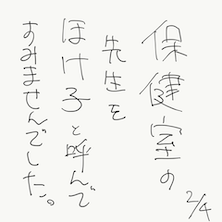 保健室の
先生を
ほけ子と呼んで
すみませんでした。
2/4